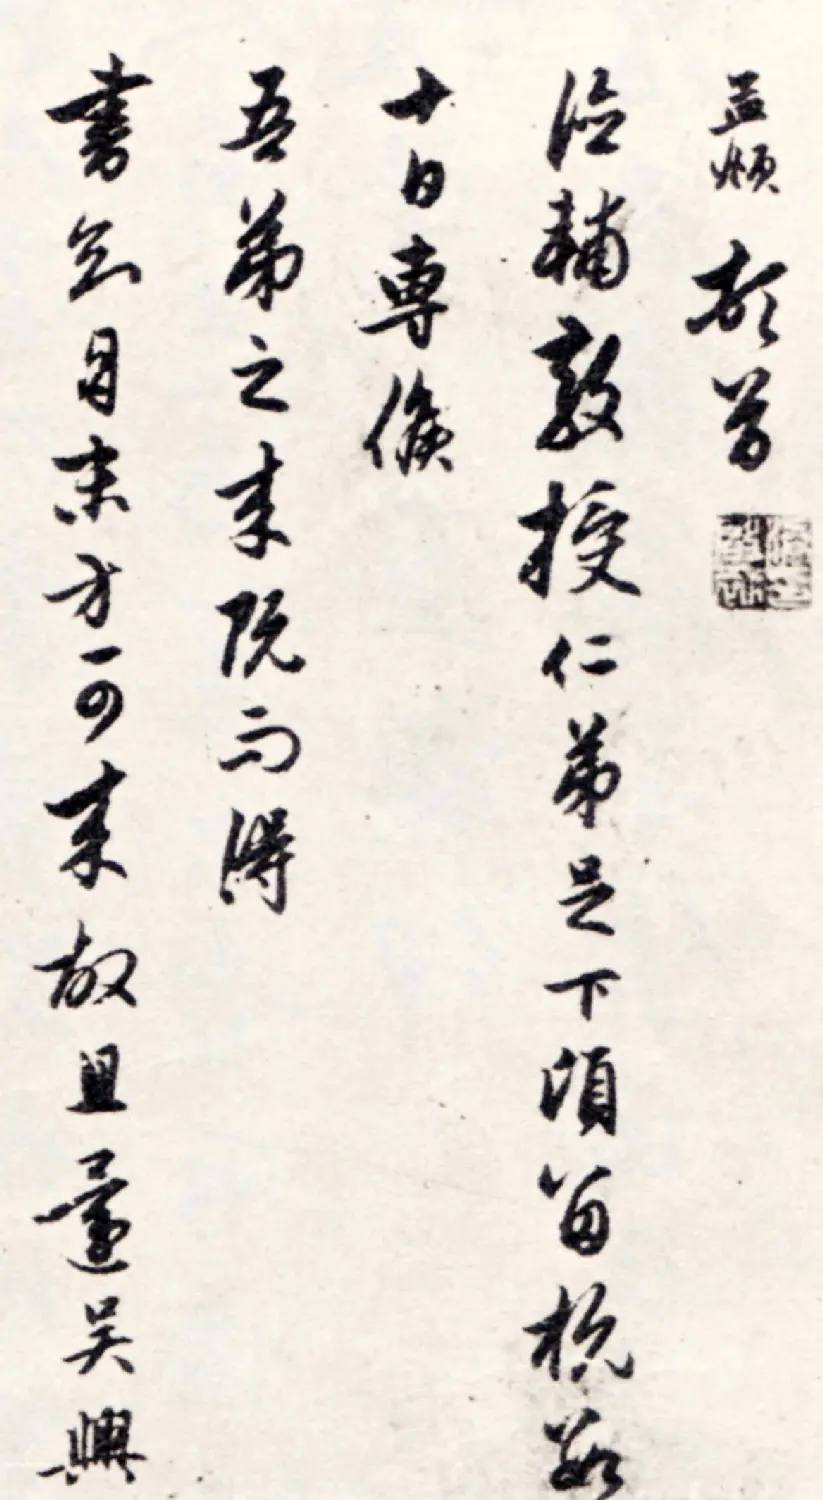 孟頫頓首
德輔教授仁弟足下頃留杭數
十日專候
吾弟之来既而得
書知月末方可来故且還吳興